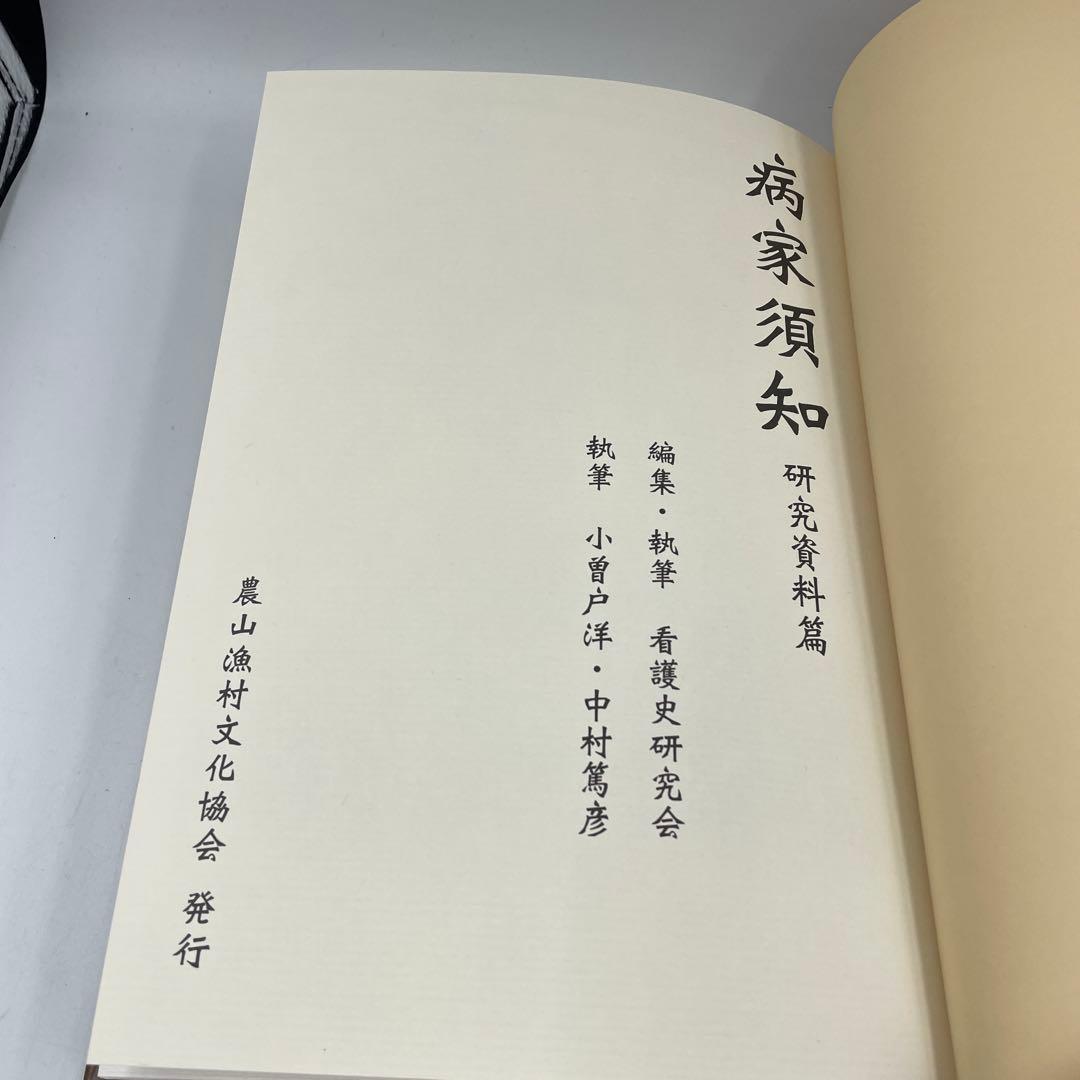 病家須知 研究資料篇
編集・執筆 看護史研究会
執筆 小曽戸洋・中村篤彦
農山漁村文化協会 発行